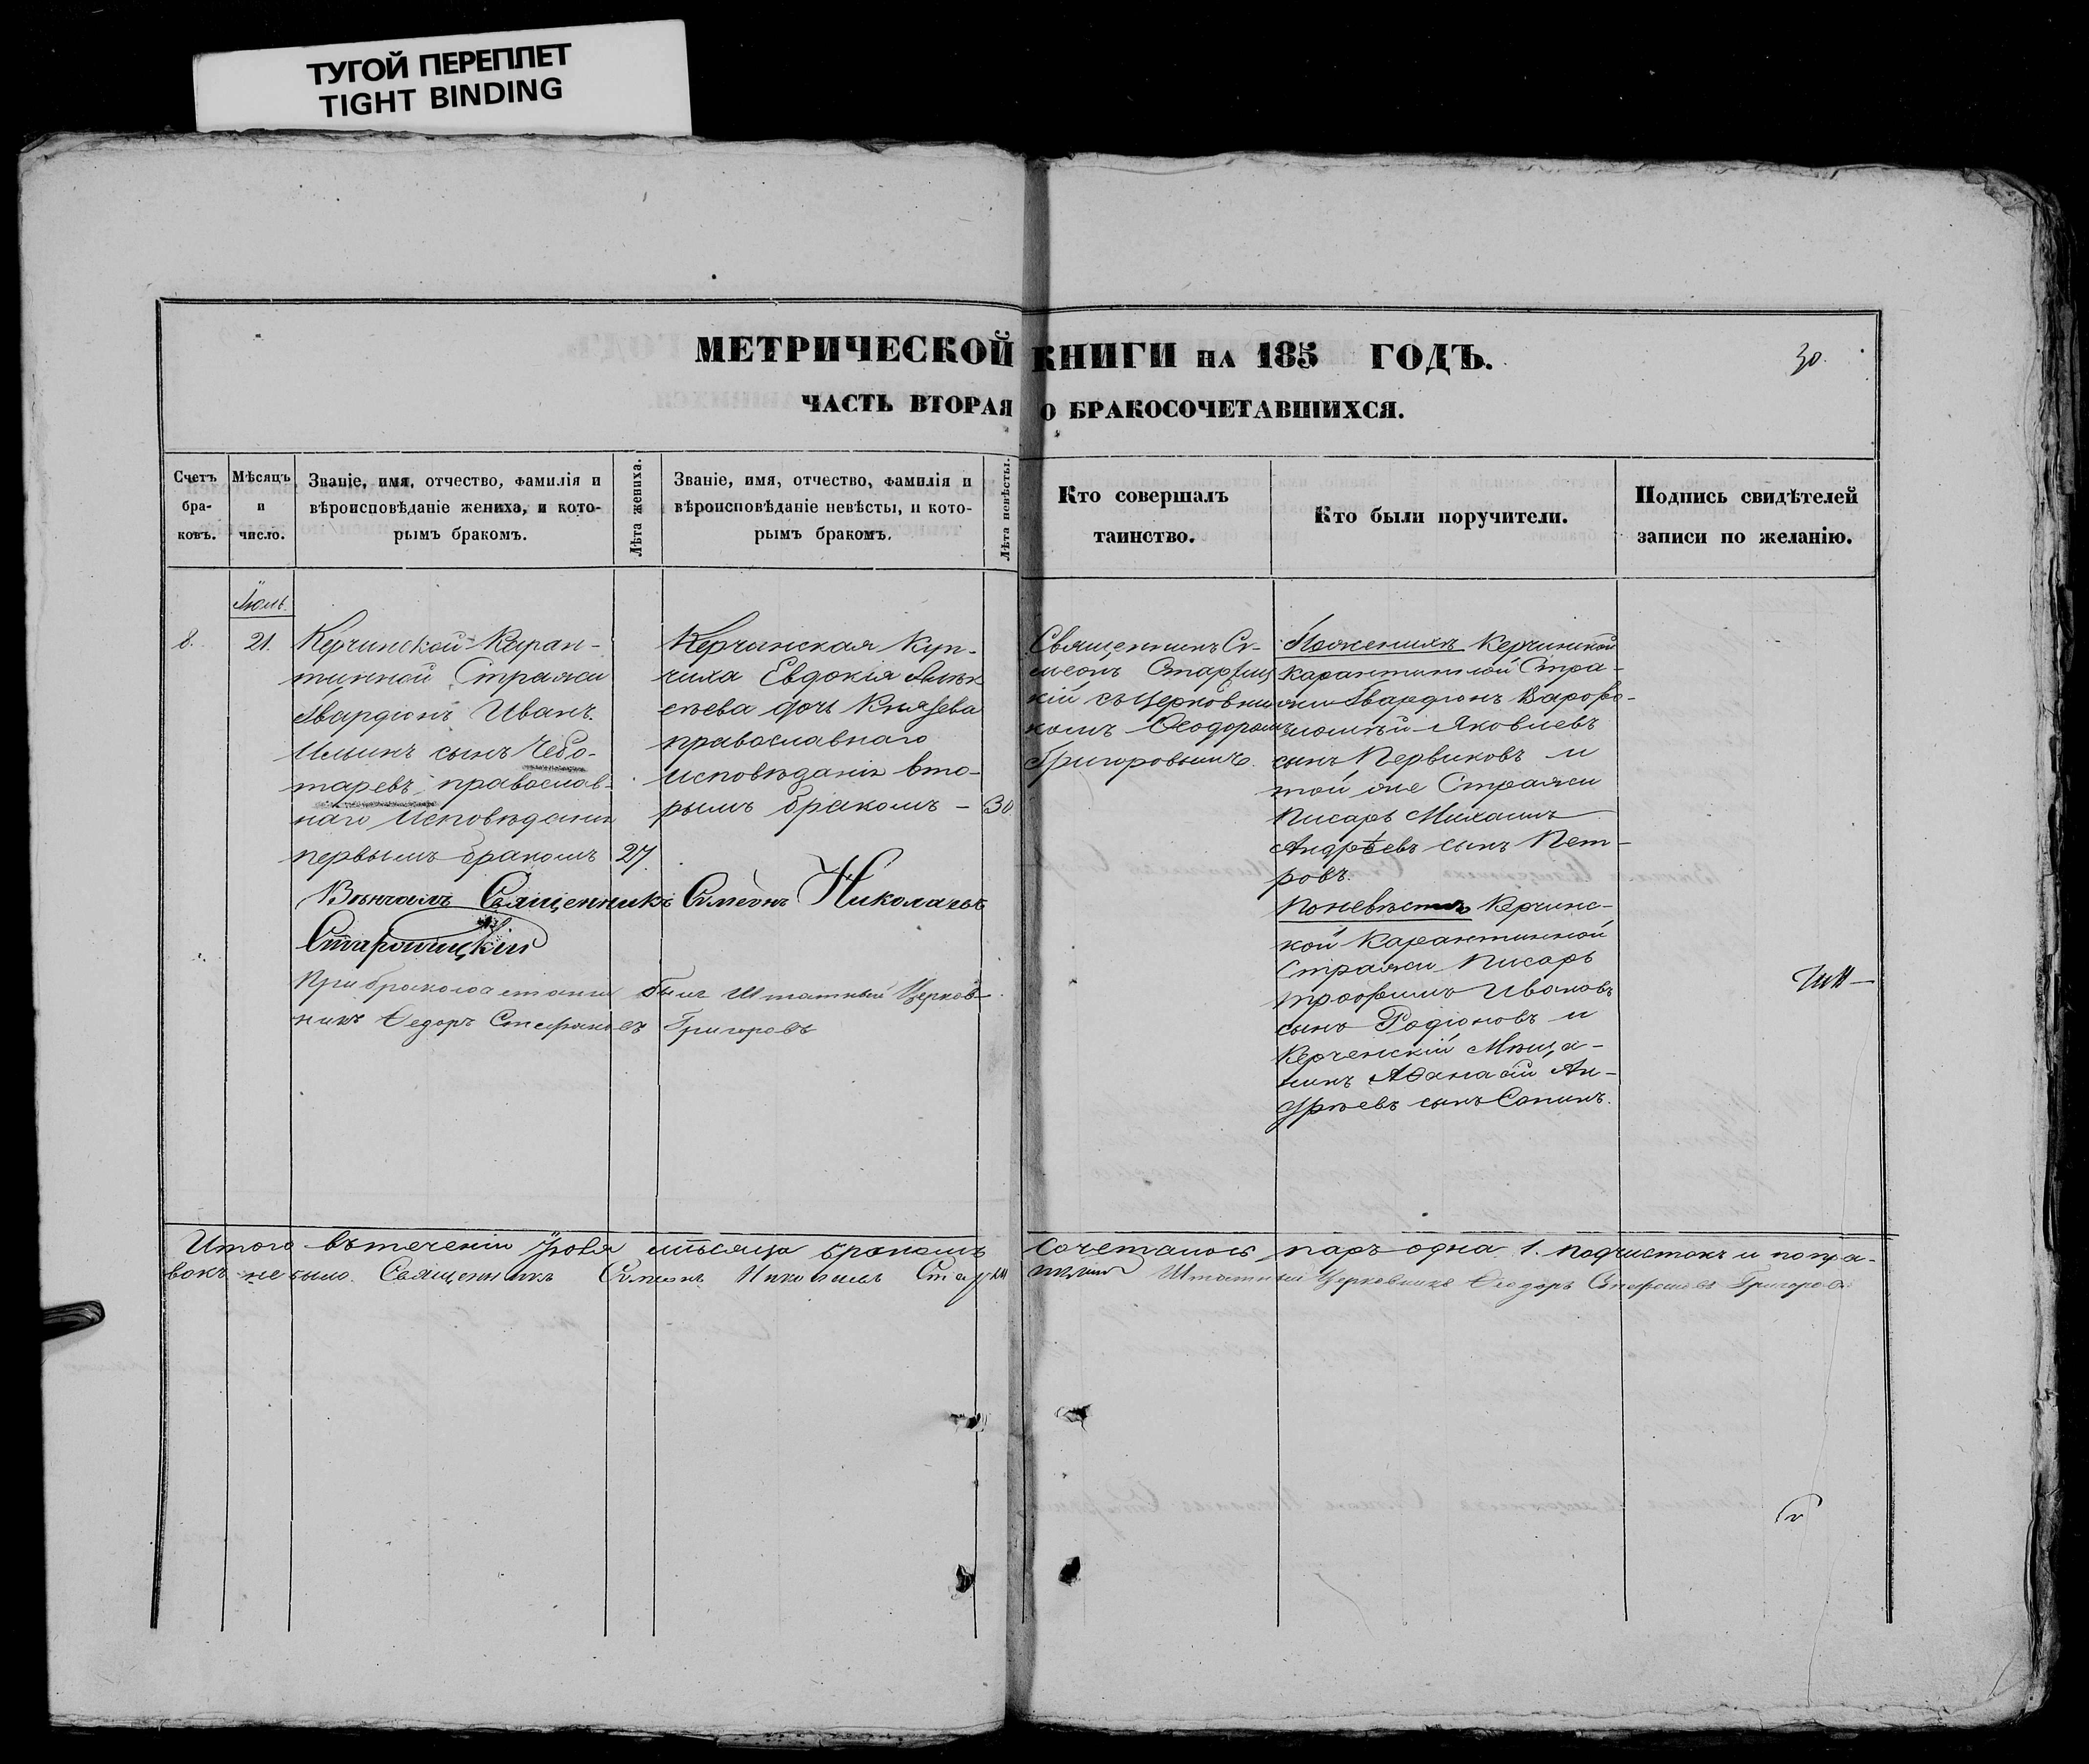 ТУГОЙ ПЕРЕПЛЕТ
TIGHT BINDING
МЕТРИЧЕСКОЙ КНИГИ НА 185 ГОДЪ.
30.
ЧАСТЬ ВТОРАЯ О БРАКОСОЧЕТАВШИХСЯ.
Счетъ
бра-
ковъ.
Мѣсяцъ
и
число.
Званіе, имя, отчество, фамилія и
вѣроисповѣданіе жениха, и кото-
рымъ бракомъ.
Лѣта жениха.
Званіе, имя, отчество, фамилія и
вѣроисповѣданіе невѣсты, и кото-
рымъ бракомъ.
Лѣта невѣсты.
Кто совершалъ
таинство.
Кто были поручители.
Подпись свидѣтелей
записи по желанію.
Іюль.
8.
21.
Керчинской Каран-
тинной Стражи
Гвардіонъ Иванъ
Ильинъ сынъ Чебо-
таревъ, православ-
наго Исповѣданія
первымъ бракомъ
27.
Керчинская Куп-
чиха Евдокія Алек
сѣева дочь Князева
православнаго
исповѣданія вто-
рымъ бракомъ –
30
Священникъ Си-
меонъ
кій съ Церковни
комъ Феодоромъ
Григоровымъ.
По женихѣ Керчинской
Карантинной Стра-
жи Гвардіонъ Варфо-
ломѣй Яковлевъ
сынъ Первиковъ и
той же Стражи
Писарь Михаилъ
Андрѣевъ сынъ Пет-
ровъ.
По невѣстѣ Керчинс-
кой Карантинной
Стражи Писарь
Трофимъ Ивановъ
сынъ Родіоновъ и
Керченскій Мѣща-
нинъ Афанасій Ан-
дрѣевъ сынъ Сапинъ.
Вѣнчалъ Священникъ Симеонъ Николаевъ
При бракосочетаніи былъ Штатный Церков-
никъ Федоръ Стефановъ Григоровъ
Итого въ теченіи Іюля мѣсяца бракомъ сочеталось паръ одна 1. подчистокъ и попра-
вокъ не было. Священникъ Симеонъ Николаевъ Штатный Церковникъ Феодоръ Стефановъ Григоровъ